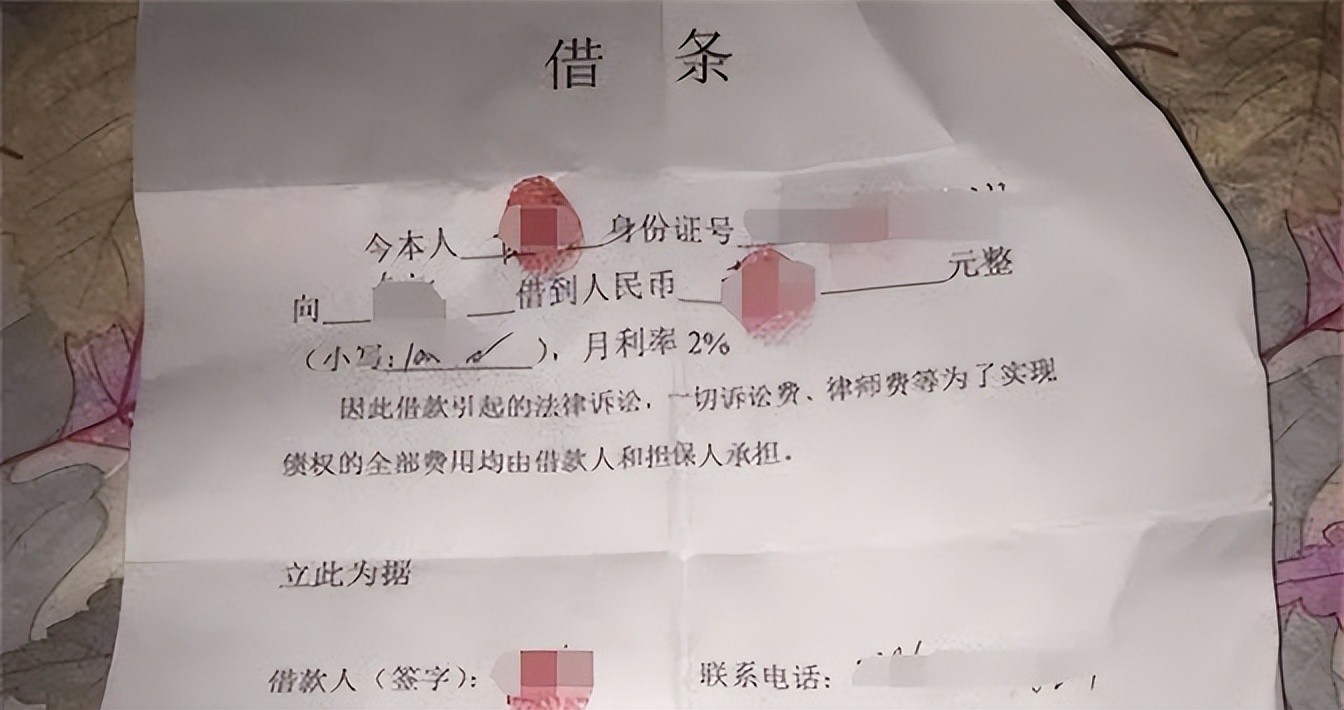 借 条
今本人 身份证号
向 借到人民币 元整
（小写: ），月利率 2%
因此借款引起的法律诉讼，一切诉讼费、律师费等为了实现
债权的全部费用均由借款人和担保人承担。
立此为据
借款人（签字）： 联系电话：